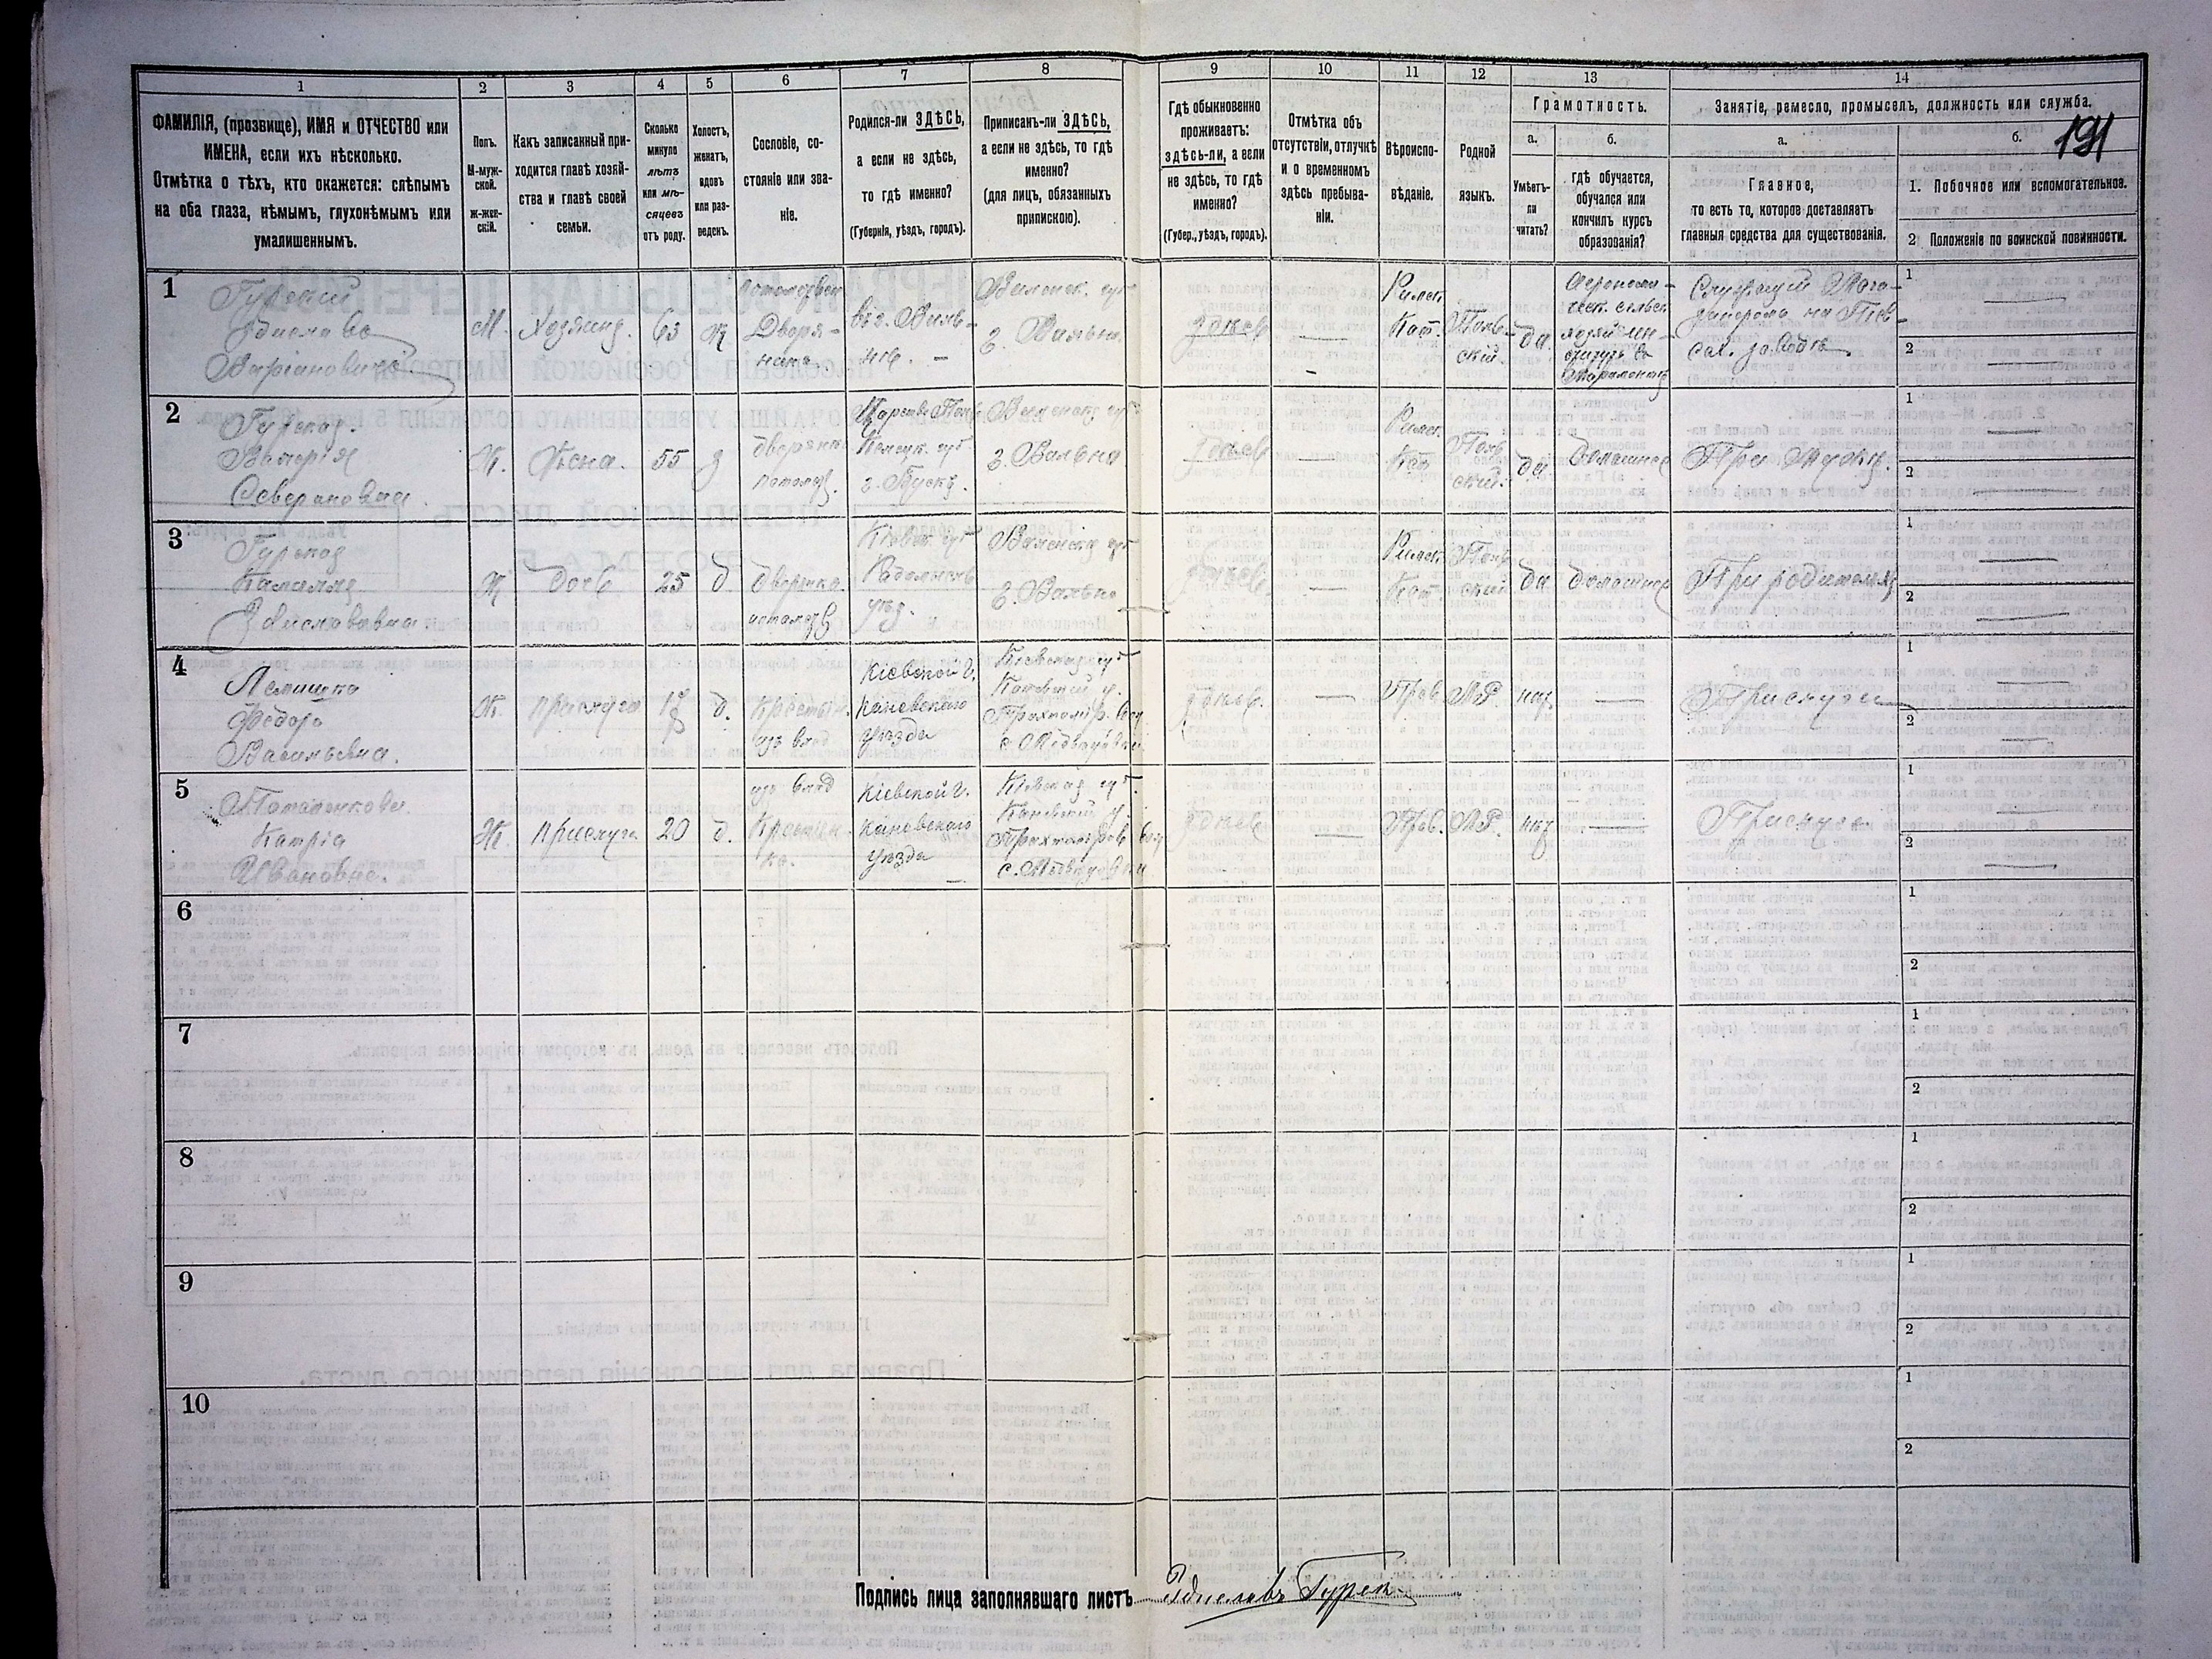 1
2
3
4
5
6
7
8
9
10
11
12
13
14
ФАМИЛІЯ, (прозвище), ИМЯ и ОТЧЕСТВО или
ИМЕНА, если ихъ нѣсколько.
Отмѣтка о тѣхъ, кто окажется: слѣпымъ
на оба глаза, нѣмымъ, глухонѣмымъ или
умалишеннымъ.
Полъ.
М-муж-
ской.
ж-жен-
скій.
Какъ записанный при-
ходится главѣ хозяй-
ства и главѣ своей
семьи.
Сколько
минуло
лѣтъ
или мѣ-
сяцевъ
отъ роду.
Холостъ,
женатъ,
вдовъ
или раз-
веденъ.
Сословіе, со-
стояніе или зва-
ніе.
Родился-ли ЗДѢСЬ,
а если не здѣсь,
то гдѣ именно?
(Губернія, уѣздъ, городъ).
Приписанъ-ли ЗДѢСЬ,
а если не здѣсь, то гдѣ
именно?
(для лицъ, обязанныхъ
припискою).
Гдѣ обыкновенно
проживаетъ:
здѣсь-ли, а если
не здѣсь, то гдѣ
именно?
(Губер., уѣздъ, городъ).
Отмѣтка объ
отсутствіи, отлучкѣ
и о временномъ
здѣсь пребыва-
ніи.
Вѣроиспо-
вѣданіе.
Родной
языкъ.
Грамотность.
а.
Умѣетъ-
ли
читать?
б.
гдѣ обучается,
обучался или
кончилъ курсъ
образованія?
Занятіе, ремесло, промыселъ, должность или служба.
а.
Главное,
то есть то, которое доставляетъ
главныя средства для существованія.
б.
191
1. Побочное или вспомогательное.
2 Положеніе по воинской повинности.
1
Гурскій
Здиславъ
М.
Хозяинъ.
63
Ж
Дворя-
нинъ.
въ г. Виль-
нѣ. —
Виленск. губ
г. Вильна.
здѣсь
Римск.
Кат.
Поль-
скій.
да
1
2
2
Гурская.
Валерія
Севериновна.
Ж.
Жена.
55
З
дворянка
потом.
Царство Поль
г. Бускъ.
Виленск. губ
г. Вильна
здѣсь
Римск.
Кат
Поль
скій.
да
домашнее
При мужѣ.
1
2
3
Гурская
Камилла
Здиславовна.
Ж
дочь
25
д
дворянка.
Кіевск. губ
Радомысль
уѣз.
Виленск. губ
г. Вильно
здѣсь.
Римск.
Кат.
Поль
скій
да
домашнее
При родителяхъ
1
2
4
Лемишка
Федора
Васильевна.
Ж.
прислуга
18
д.
Крестьян.
изъ влад
Кіевской г.
Каневскаго
уѣзда
Кіевская губ
Каневскій у.
здѣсь.
Прав.
МР.
нѣт
Прислуга
1
2
5
Потапенкова
Катрія
Ивановна.
Ж.
прислуга
20
д.
изъ влад
Крестьян-
ка.
Кіевской г.
Каневскаго
уѣзда
Кіевская губ.
Каневскій у.
здѣсь
Прав.
МР.
нѣт
Прислуга
1
2
6
1
2
7
1
2
8
1
2
9
1
2
10
1
2
Подпись лица заполнявшаго листъ
Здиславъ Гурск